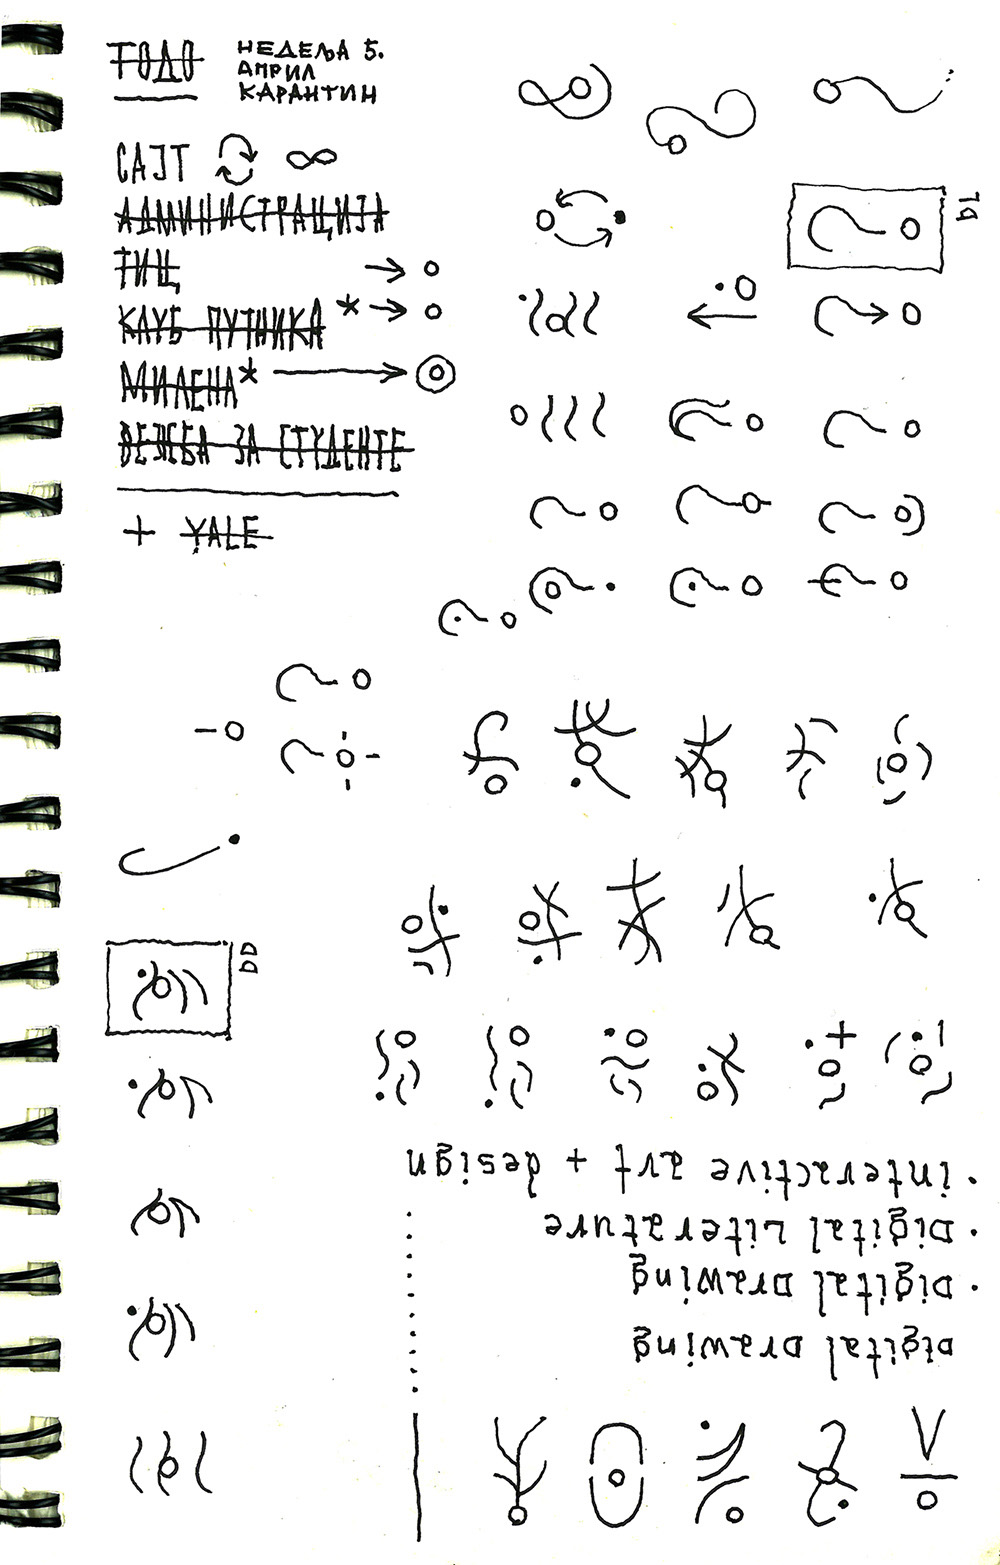 ТОДО
НЕДЕЉА 5.
АПРИЛ
КАРАНТИН
САЈТ
АДМИНИСТРАЦИЈА
ТИЦ
КЛУБ ПУТНИКА *
МИЛЕНА*
ВЕЖБА ЗА СТУДЕНТЕ
+ YALE
DD
· interactive art + design
· DIGITAL LITERATURE
· DIGITAL DRAWING
DIGITAL DRAWING